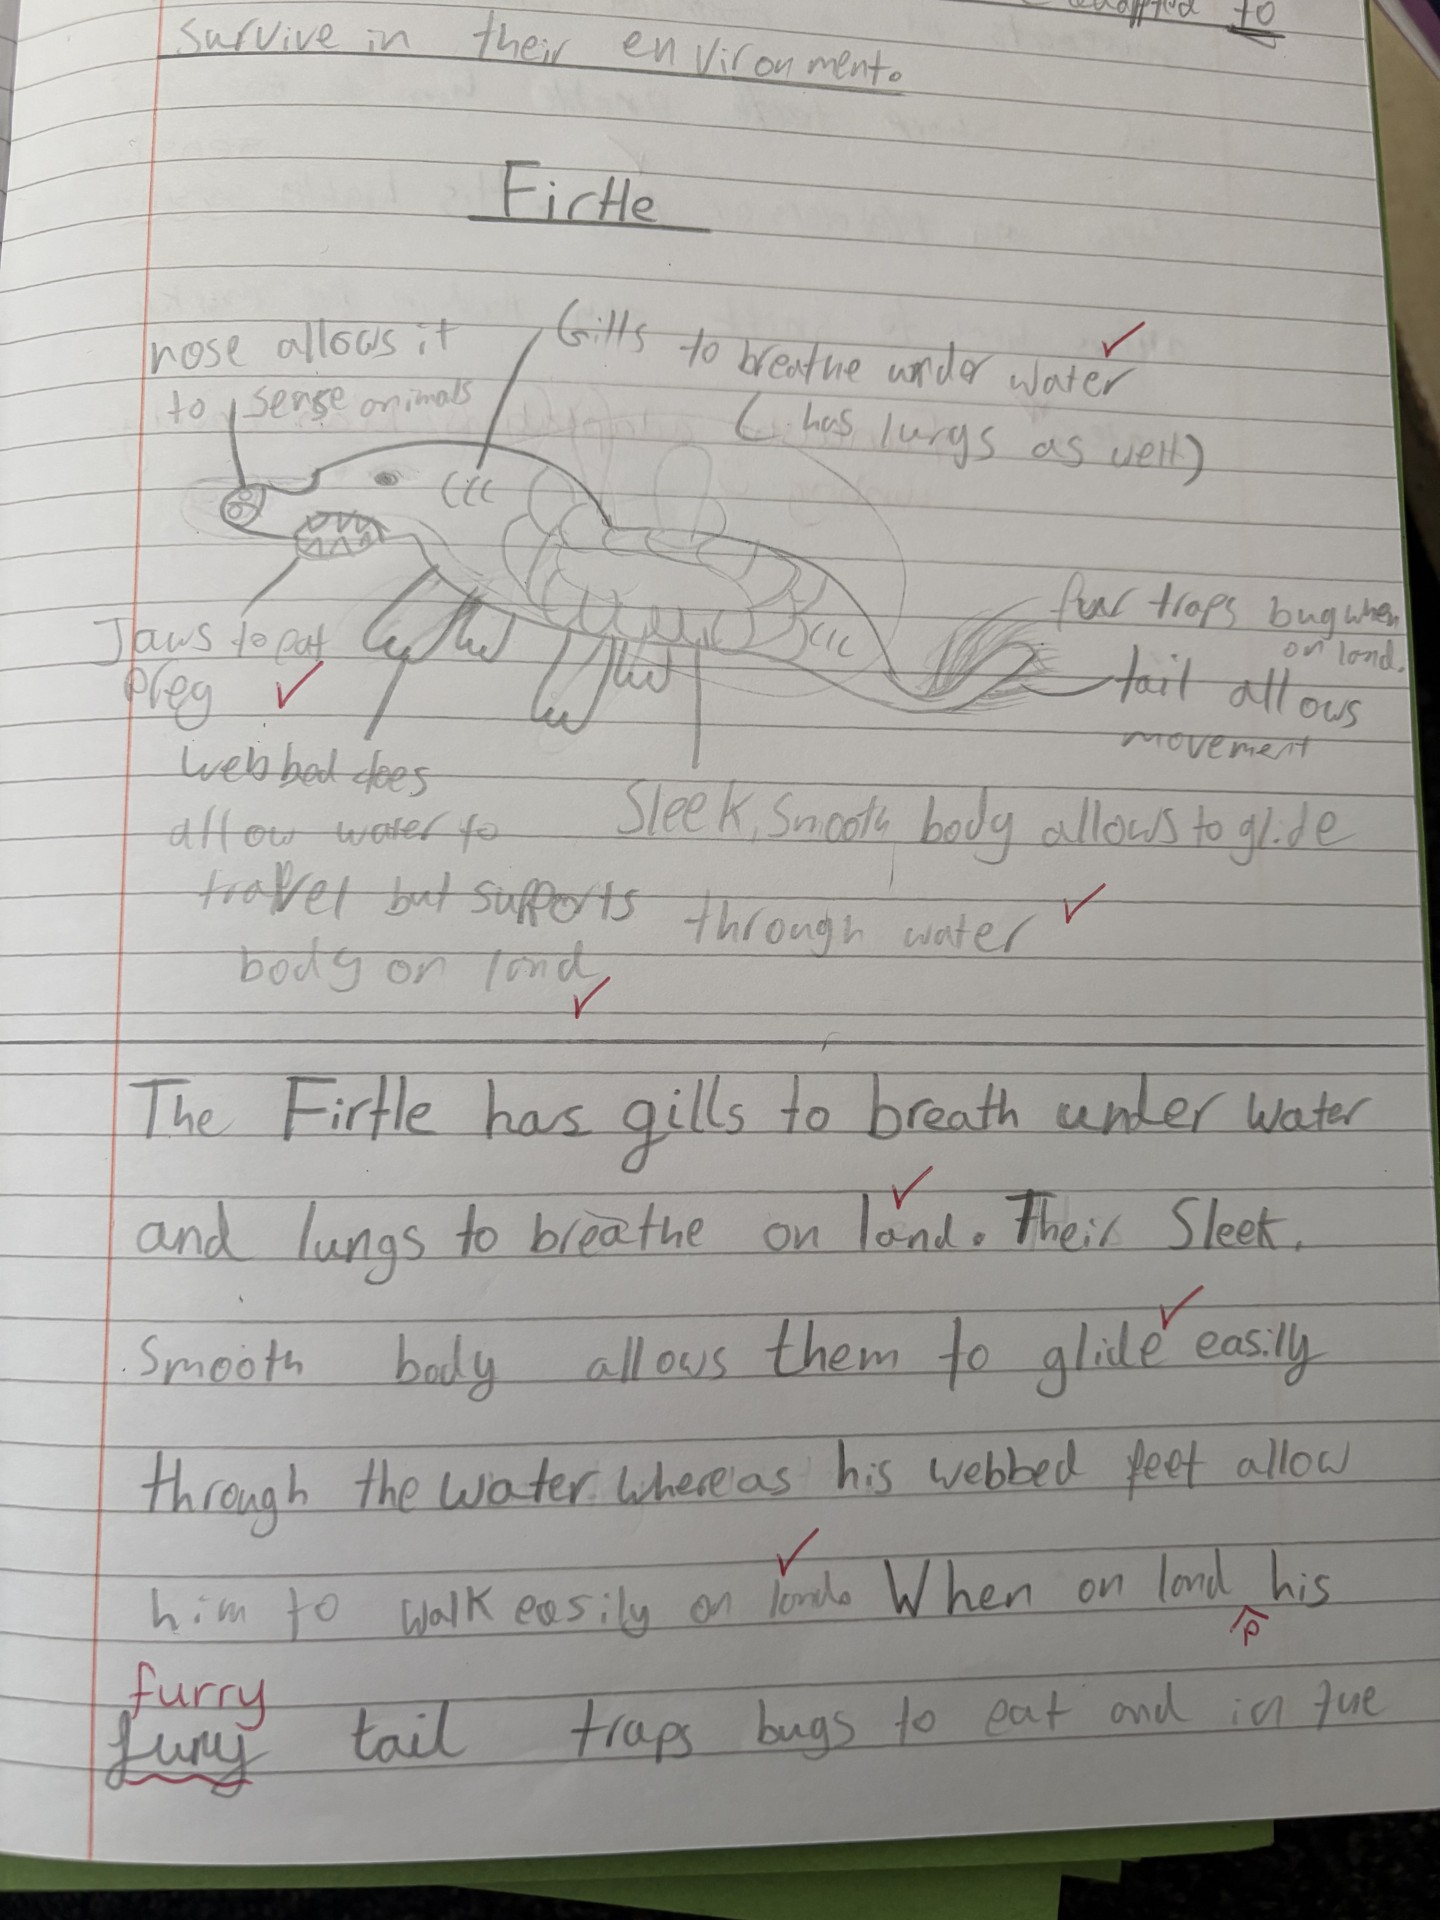 adapted to
survive in their environment.
Firtle
nose allows it
to sense animals
Gills to breathe under water
(has lungs as well)
Jaws to eat
prey
fur traps bug when
on land.
tail allows
movement
webbed toes
allow water to
travel but supports
body on land
Sleek, Smooth body allows to glide
through water
The Firtle has gills to breath under water
and lungs to breathe on land. Their Sleek,
Smooth body allows them to glide easily
through the water. Whereas his webbed feet allow
him to walk easily on land. When on land his
P
furry
fury tail traps bugs to eat and in the